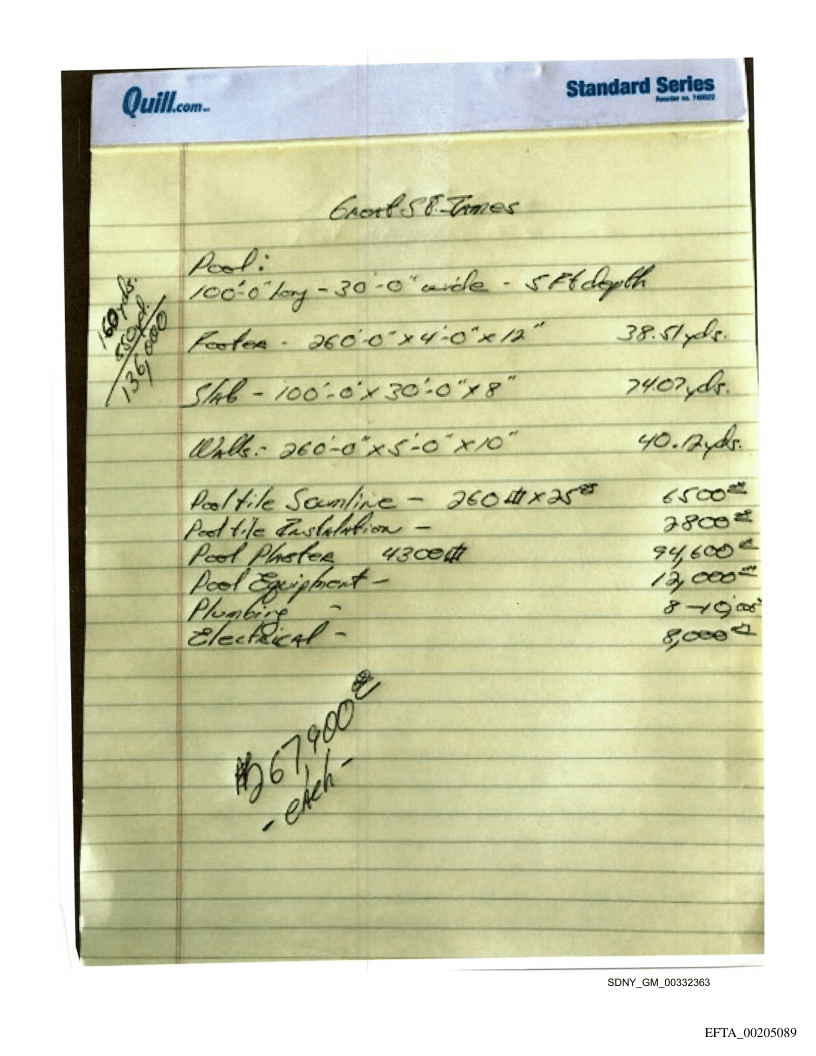 Quill.com
Standard Series
Reorder no. 740022
Great St. James
Pool:
100'-0" long - 30'-0" wide - 5 Ft depth
160 yds.
850 yd.
136,000
Footer - 260'-0" x 4'-0" x 12" 38.51 yds.
Slab - 100'-0" x 30'-0" x 8" 74.07 yds.
Walls:- 260'-0" x 5'-0" x 10" 40.12 yds.
Pool tile Scumline - 260 x 25 6500
Pool tile Installation - 2800
Pool Plaster 4300 94,600
Pool Equipment - 12,000
Plumbing - 8-10,00
Electrical - 8,000
$267900
- each -
SDNY_GM_00332363
EFTA_00205089